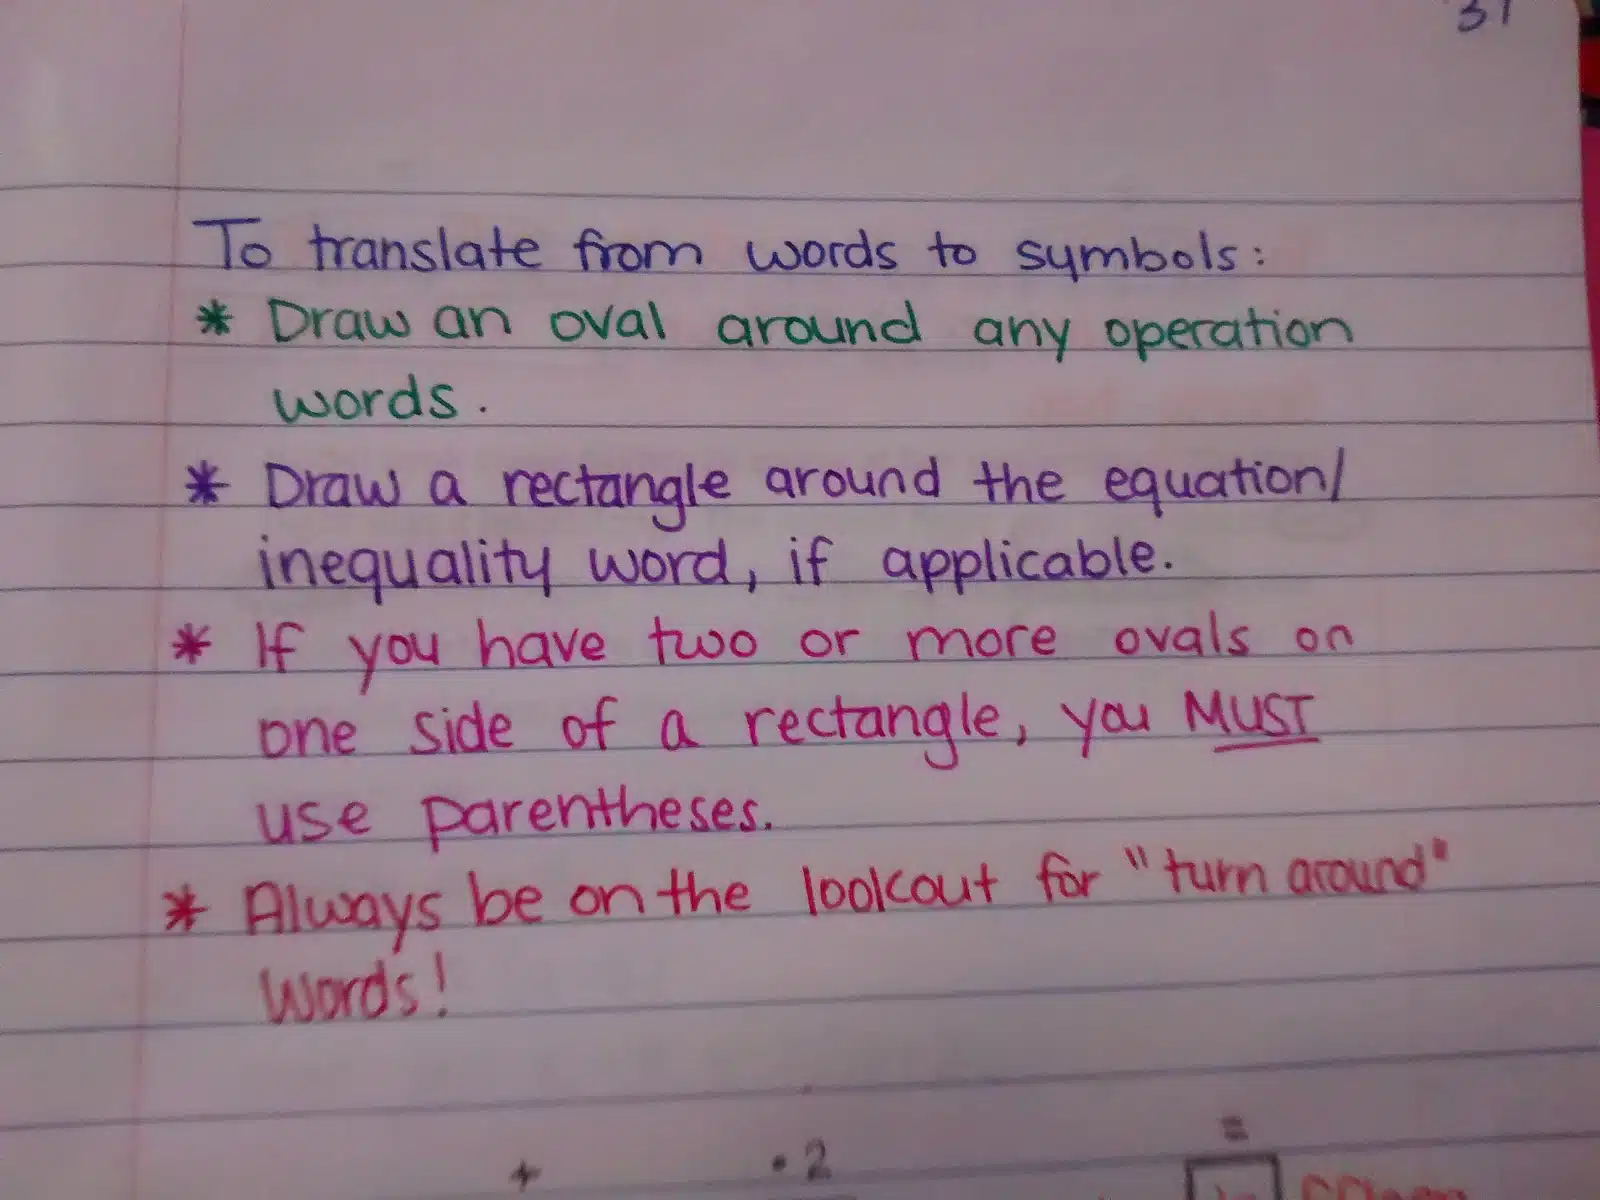 31
To translate from words to symbols:
* Draw an oval around any operation
words.
* Draw a rectangle around the equation/
inequality word, if applicable.
* If you have two or more ovals on
one side of a rectangle, you MUST
use parentheses.
* Always be on the lookout for "turn around"
words!
+ • 2 =